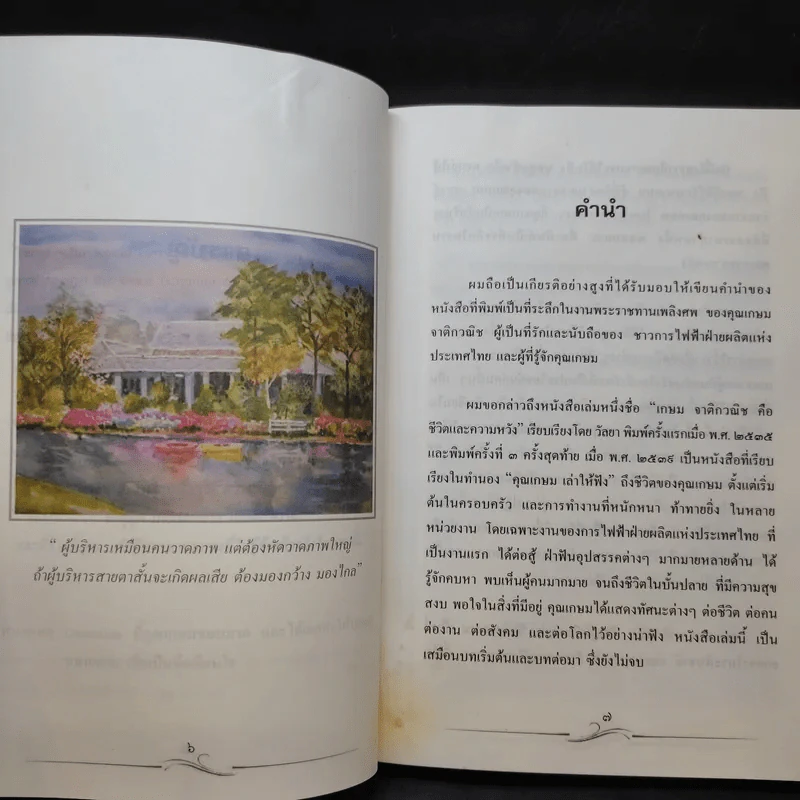 “ ผู้บริหารเหมือนคนวาดภาพ แต่ต้องหัดวาดภาพใหญ่
ถ้าผู้บริหารสายตาสั้นจะเกิดผลเสีย ต้องมองกว้าง มองไกล”
๖
คำนำ
ผมถือเป็นเกียรติอย่างสูงที่ได้รับมอบให้เขียนคำนำของ
หนังสือที่พิมพ์เป็นที่ระลึกในงานพระราชทานเพลิงศพ ของคุณเกษม
จาติกวณิช ผู้เป็นที่รักและนับถือของ ชาวการไฟฟ้าฝ่ายผลิตแห่ง
ประเทศไทย และผู้ที่รู้จักคุณเกษม
ผมขอกล่าวถึงหนังสือเล่มหนึ่งชื่อ “เกษม จาติกวณิช คือ
ชีวิตและความหวัง” เรียบเรียงโดย วัลยา พิมพ์ครั้งแรกเมื่อ พ.ศ. ๒๕๓๕
และพิมพ์ครั้งที่ ๓ ครั้งสุดท้าย เมื่อ พ.ศ. ๒๕๓๙ เป็นหนังสือที่เรียบ
เรียงในทำนอง “คุณเกษม เล่าให้ฟัง” ถึงชีวิตของคุณเกษม ตั้งแต่เริ่ม
ต้นในครอบครัว และการทำงานที่หนักหนา ท้าทายยิ่ง ในหลาย
หน่วยงาน โดยเฉพาะงานของการไฟฟ้าฝ่ายผลิตแห่งประเทศไทย ที่
เป็นงานแรก ได้ต่อสู้ ฝ่าฟันอุปสรรคต่างๆ มากมายหลายด้าน ได้
รู้จักคบหา พบเห็นผู้คนมากมาย จนถึงชีวิตในบั้นปลาย ที่มีความสุข
สงบ พอใจในสิ่งที่มีอยู่ คุณเกษมได้แสดงทัศนะต่างๆ ต่อชีวิต ต่อคน
ต่องาน ต่อสังคม และต่อโลกไว้อย่างน่าฟัง หนังสือเล่มนี้ เป็น
เสมือนบทเริ่มต้นและบทต่อมา ซึ่งยังไม่จบ
๗